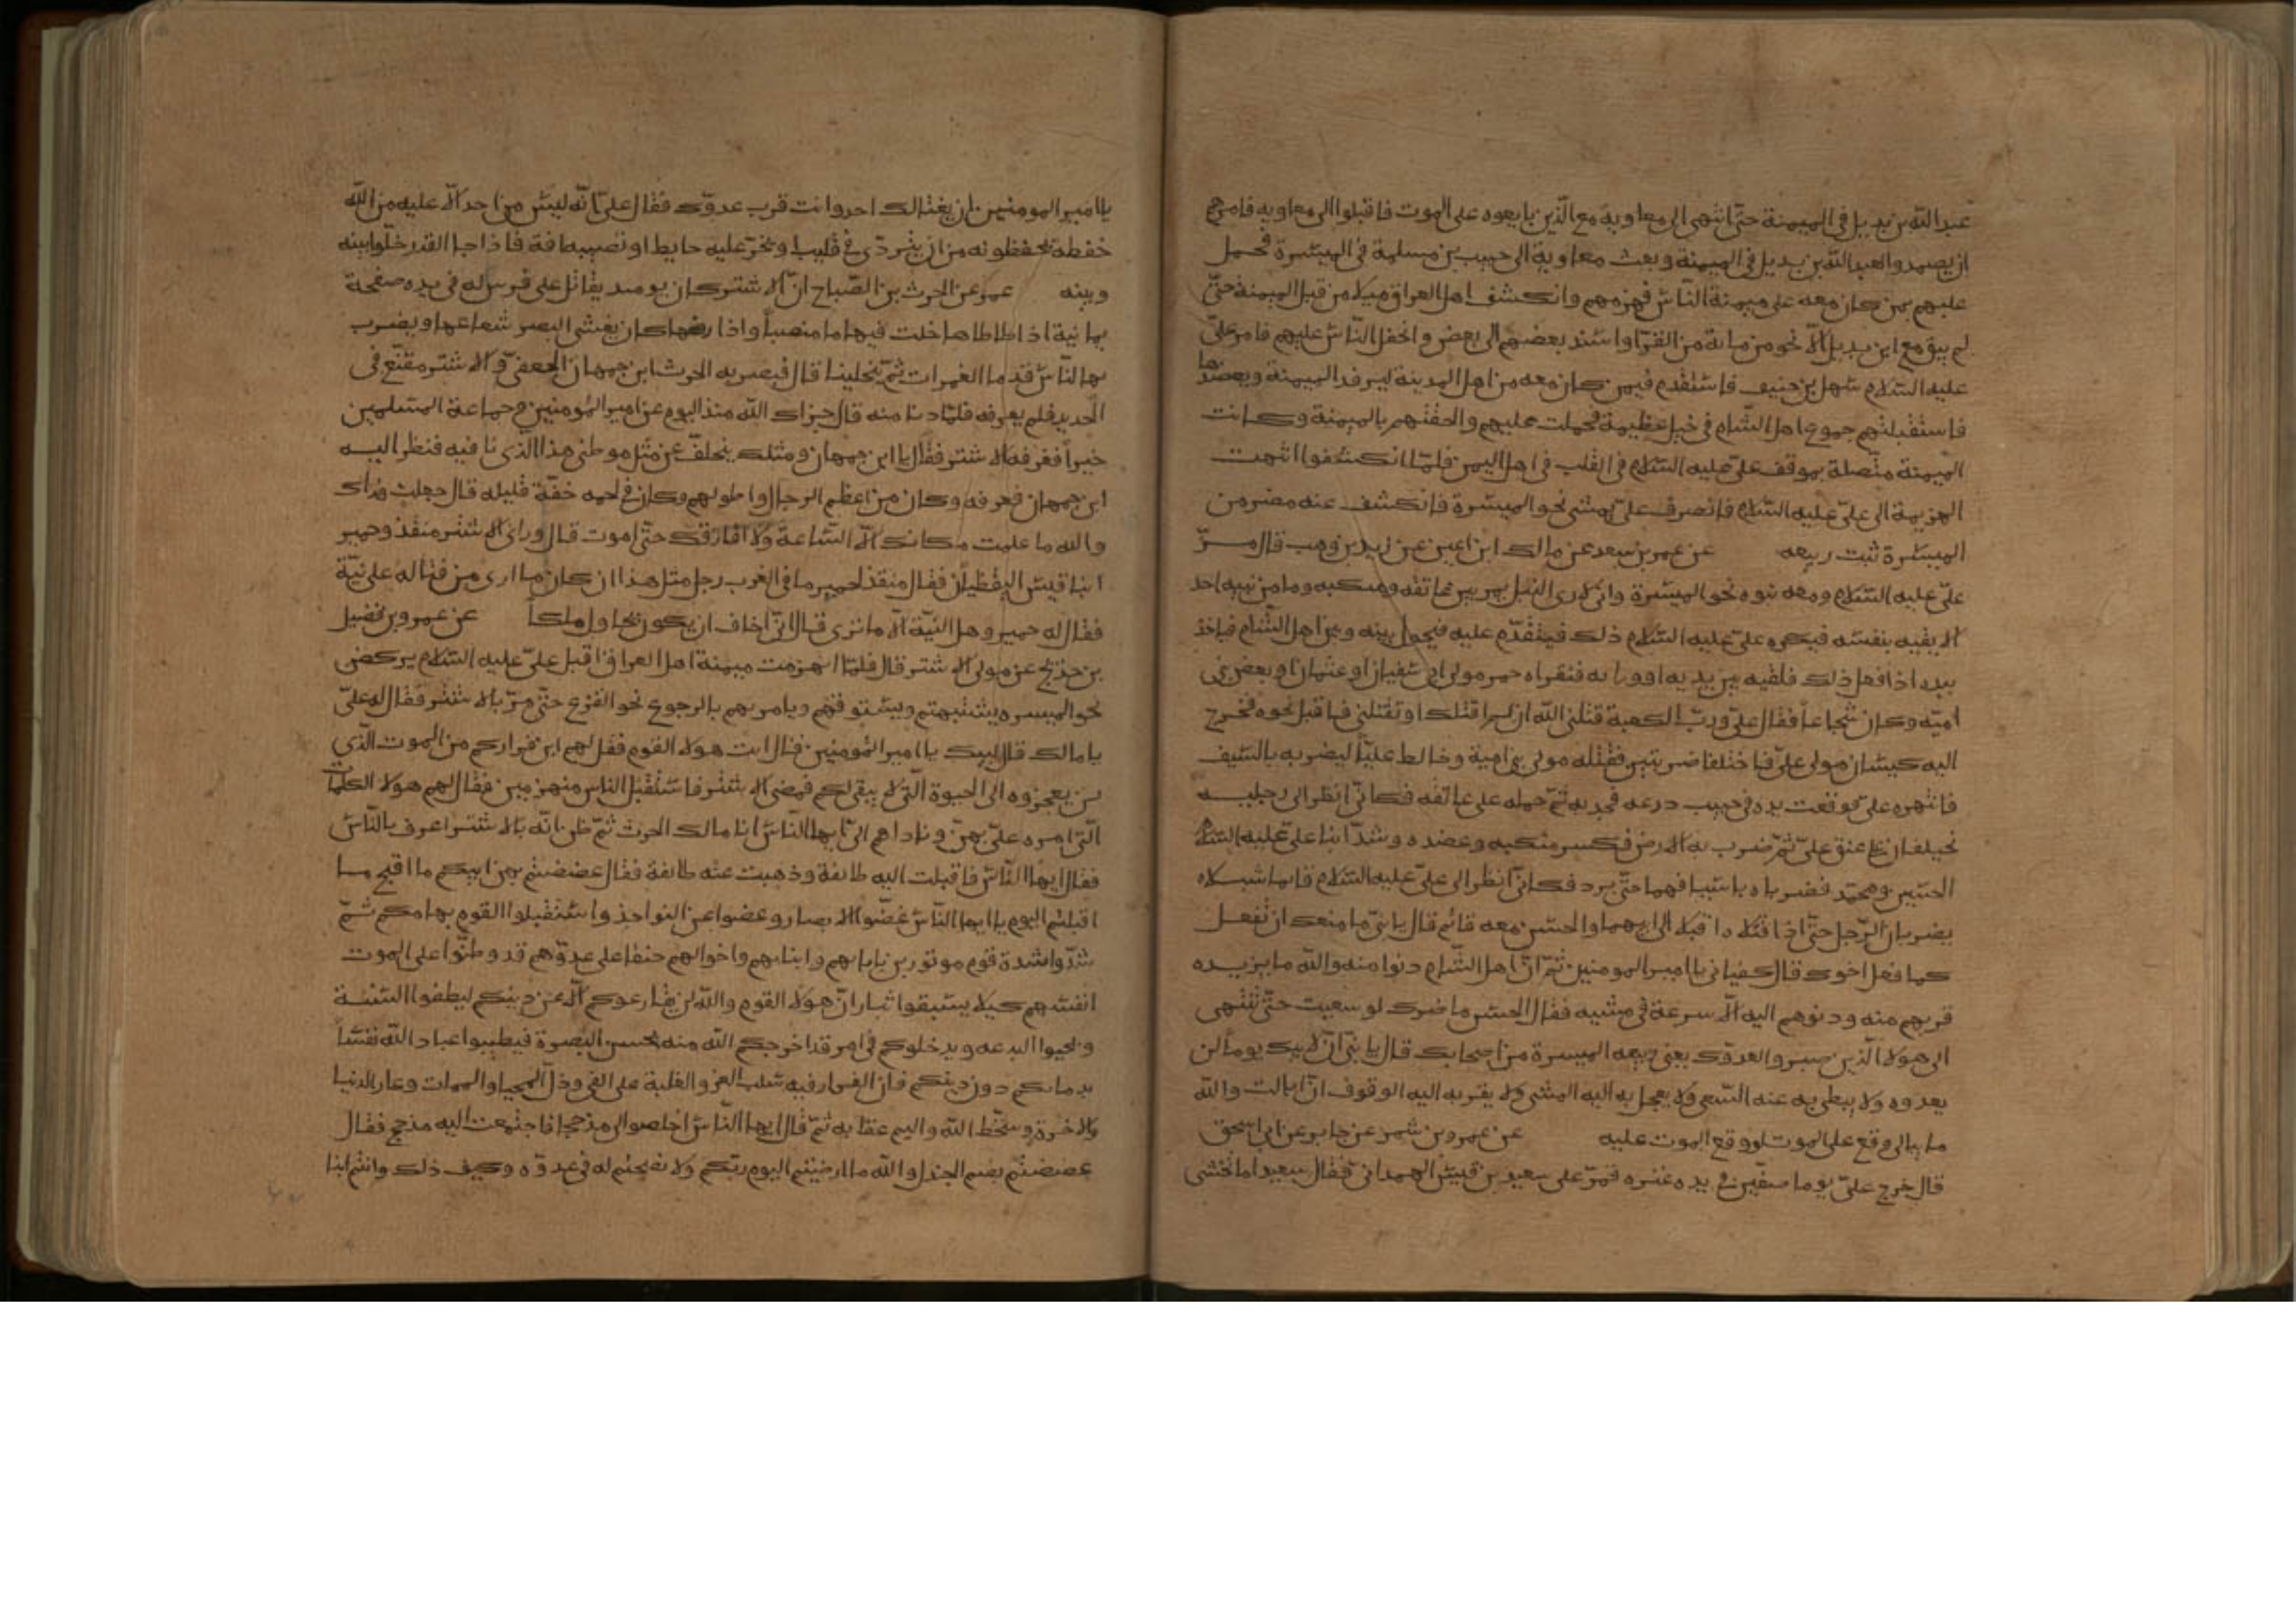 عبدالله بن بديل في الميمنة حتّى انتهى الى معاوية مع الّذين بايعوه على الموت فاقبلوا الى معاوية فامرهم
ان يصمدوا لعبدالله بن بديل في الميمنة وبعث معاوية الى حبيب بن مسلمة في الميسرة فحمل
عليهم بمن كان معه على ميمنة النّاس فهزمهم وانكشف اهل العراق ميلا من قبل الميمنة حتّى
لم يبق مع ابن بديل الّا نحو من مائة من القرّا واستند بعضهم الى بعض وانجفل النّاس عليهم فامر علىّ
عليه السّلام سهل بن حنيف فاستقدم فيمن كان معه من اهل المدينة ليرفد الميمنة ويعضدها
فاستقبلتهم جموع اهل الشّام في خيل عظيمة فحملت عليهم والحقتهم بالميمنة وكانت
الميمنة متّصلة بموقف علىّ عليه السّلام في القلب في اهل اليمن فلمّا انكشفوا انتهت
الهزيمة الى علىّ عليه السّلام فانصرف علىّ يمشى نحو الميسرة فانكشف عنه مضر من
الميسرة ثبت ربيعه عن عمر بن سعد عن مالك ابن اعين عن زيد بن وهب قال مرّ
علىّ عليه السّلام ومعه بنوه نحو الميسرة وانّى لارى النبل يمر بين عاتقه ومنكبه وما من بنيه احد
الّا يقيه بنفسه فيكره علىّ عليه السّلام ذلك فيتقدّم عليه فيحول بينه وبين اهل الشّام فياخذ
بيده اذا فعل ذلك فلقيه بين يديه او ورايه فنقراه حمر مولى ابى سفيان او عثمان او بعض بنى
اميّه وكان شجاعاً فقال علىّ وربّ الكعبة قتلنى الله ان لم اقتلك او تقتلنى فاقبل نحوه فخرج
اليه كيسان مولى علىّ فاختلفا ضربتين فقتله مولى بنى امية وخالط عليّاً ليضربه بالسّيف
فانتهره علىّ فوقعت يده في جيب درعه فجذبه ثمّ حمله على عاتقه فكانّى انظر الى رجليه
تختلفان على عنق علىّ ثمّ ضرب به الارض فكسر منكبه وعضده وشدّ ابنا علىّ عليه السّلم
الحسين ومحمّد فضرباه باسيافهما حتّى برد فكانّى انظر الى علىّ عليه السّلام قايما شبلاه
يضربان الرّجل حتّى اذا قتلاه اقبلا الى ابيهما والحسن معه قائم قال يا بنىّ ما منعك ان تفعل
كما فعل اخوك قال كفيانى يا امير المومنين ثمّ انّ اهل الشّام دنوا منه والله ما يزيده
قربهم منه ودنوهم اليه الّا سرعة في مشيه فقال الحسن ما ضرك لو سعيت حتّى تنتهى
الى هولا الّذين صبروا لعدوّك يعنى ربيعه الميسرة من اصحابك قال يا بنىّ انّ لابيك يوماً لن
يعدوه ولا يبطى به عنه السّعى ولا يعجل به اليه المشى ولا يقربه اليه الوقوف انّ اباك والله
ما يبالى وقع على الموت او وقع الموت عليه عن عمرو بن شمر عن جابر عن ابى اسحق
قال خرج علىّ يوما صفّين في يده عنزه فمرّ على سعيد بن قيس الهمدانى فقال سعيد اما تخشى
يا امير المومنين ان يغتالك احد وانت قرب عدوّك فقال علىّ انّه ليس من احد الّا عليه من الله
حفظة يحفظونه من ان يتردّى في قليب او يخرّ عليه حايط او تصيبه افة فاذا جا القدر خلّوا بينه
وبينه عمر عن الحرث بن الصّباح انّ الاشتر كان يومئذ يقاتل على فرس له في يده صفحة
يمانية اذا طاطاها خلت فيها ما منصباً واذا رفعها كان يغشى البصر شعاعها ويضرب
بها النّاس قدما الغمرات ثمّ ينجلينا قال فبصر به الحرث ابن جمهان الجعفى والاشتر مقنّع في
الحديد فلم يعرفه فلمّا دنا منه قال جزاك الله منذ اليوم عن امير المؤمنين وجماعة المسلمين
خيراً فعرفه الاشتر فقال يا ابن جمهان ومثلك يتخلف عن مثل موطنى هذا الذى انا فيه فنظر اليه
ابن جمهان فعرفه وكان من اعظم الرجال واطولهم وكان في لحيه خفّة قليله قال جعلت فداك
والله ما علمت مكانك الّا السّاعة ولا افارقك حتّى اموت قال وراى الاشتر منقذ وحمير
ابنا قيس اليقظيان فقال منقذ لحمير ما في العرب رجل مثل هذا ان كان ما ارى من قتاله على نيّة
فقال له حمير وهل النيّة الّا ما ترى قال انّى اخاف ان يكون يحاول ملكا عن عمرو بن فضيل
بن خديج عن مولى الاشتر قال فلمّا انهزمت ميمنة اهل العراق اقبل علىّ عليه السّلام يركض
نحو الميسره يستثيبهم ويستوقفهم ويامرهم بالرجوع نحو الفزع حتّى مرّ بالاشتر فقال له علىّ
يا مالك قال لبيك يا امير المؤمنين قال ايت هولا القوم فقل لهم اين فراركم من الموت الّذى
لن يعجزوه الى الحيوة الّتى لا يبقى لكم فمضى الاشتر فاستقبل الناس منهزمين فقال لهم هولا الكلمات
الّتى امره علىّ بهنّ وناداهم الىّ ايها النّاس انا مالك الحرث ثمّ ظن انّه بالاشتر اعرف بالنّاس
فقال ايها النّاس فاقبلت اليه طائفة وذهبت عنه طائفة فقال عضضتم بهن ابيكم ما اقبح ما
اقبلتم اليوم يا ايها النّاس غضّوا الابصار وعضوا عن النواجذ واستقبلوا القوم بهامكم ثمّ
شدّوا شدة قوم موتورين بابايهم وابنايهم واخوالهم حنقا على عدوّهم قد وطّنوا على الموت
انفسهم كيلا يسبقوا بثار انّ هولا القوم والله لن يقارعوكم الّا عن دينكم ليطفوا السّنة
ويحيوا البدعه ويدخلوكم في امر قد اخرجكم الله منه بحسن البصرة فطيبوا عباد الله نفسا
بدمائكم دون دينكم فان الفرار فيه سلب العز والغلبة على الفى وذلّ المحيا والممات وعار الدنيا
والاخرة وسخّط الله واليم عقابه ثمّ قال ايها النّاس اخلصوا الى مذحجا فاجتمعت اليه مذحج فقال
عضضتم بصم الجندل والله ما ارضيتم اليوم ربّكم ولا نصحتم له في عدوّه وكيف ذلك وانتم ابنا